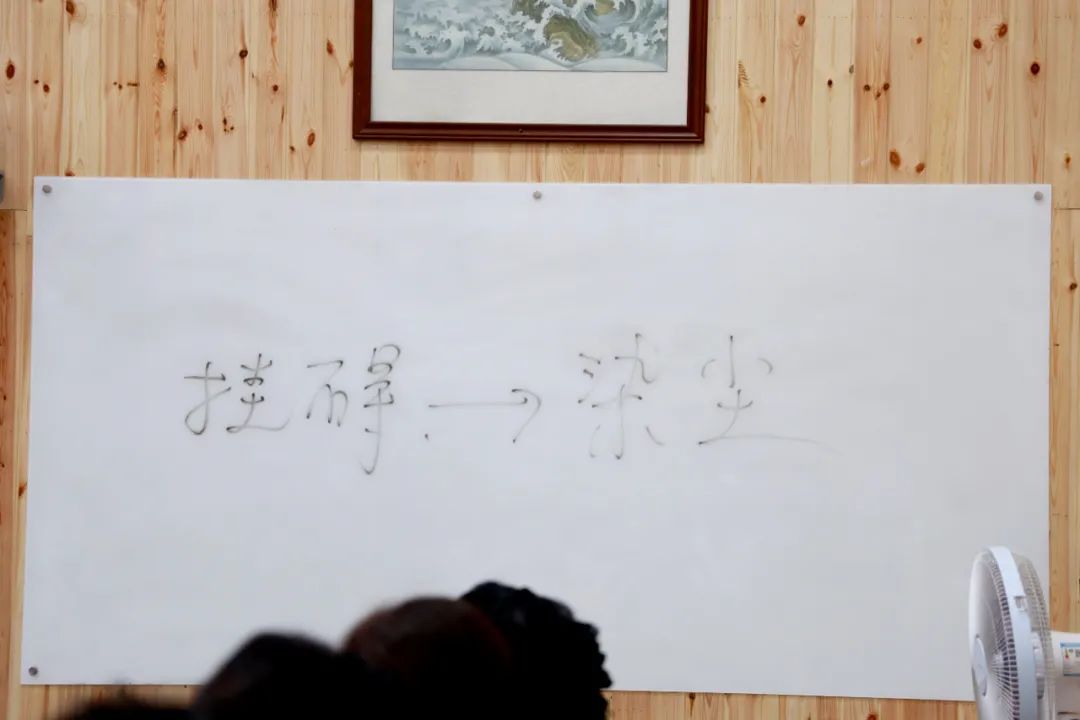 挂碍→染尘